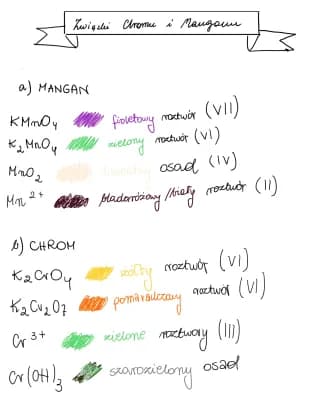 Związki Chromu i Manganu
a) MANGAN
KMnO4 fioletowy roztwór (VII)
K2MnO4 zielony roztwór (VI)
MnO2 osad (IV)
Mn2+ bladoróżowy/biały roztwór (II)
b) CHROM
K2CrO4 żółty roztwór (VI)
K2Cr2O7 pomarańczowy roztwór (VI)
Cr3+ zielone roztwory (III)
Cr(OH)3 szarozielony osad